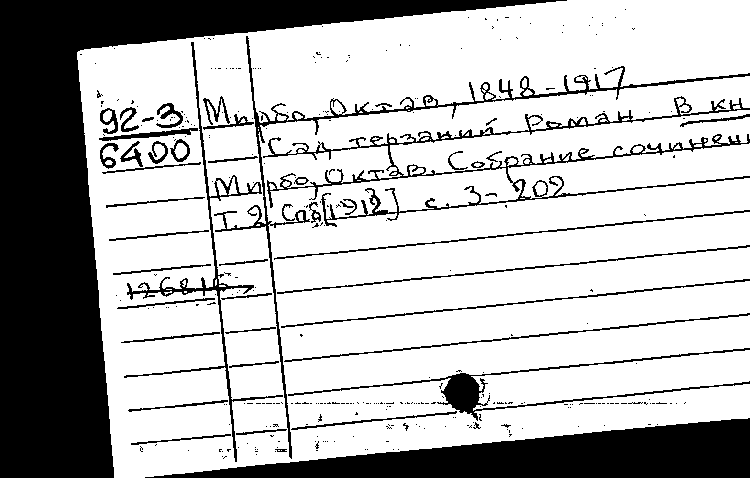 92-3
6400
Мирбо, Октав, 1848-1917
Сад терзаний. Роман. В кн
Мирбо, Октав. Собрание сочинени
Т. 2. Спб [1912] с. 3-202
126816